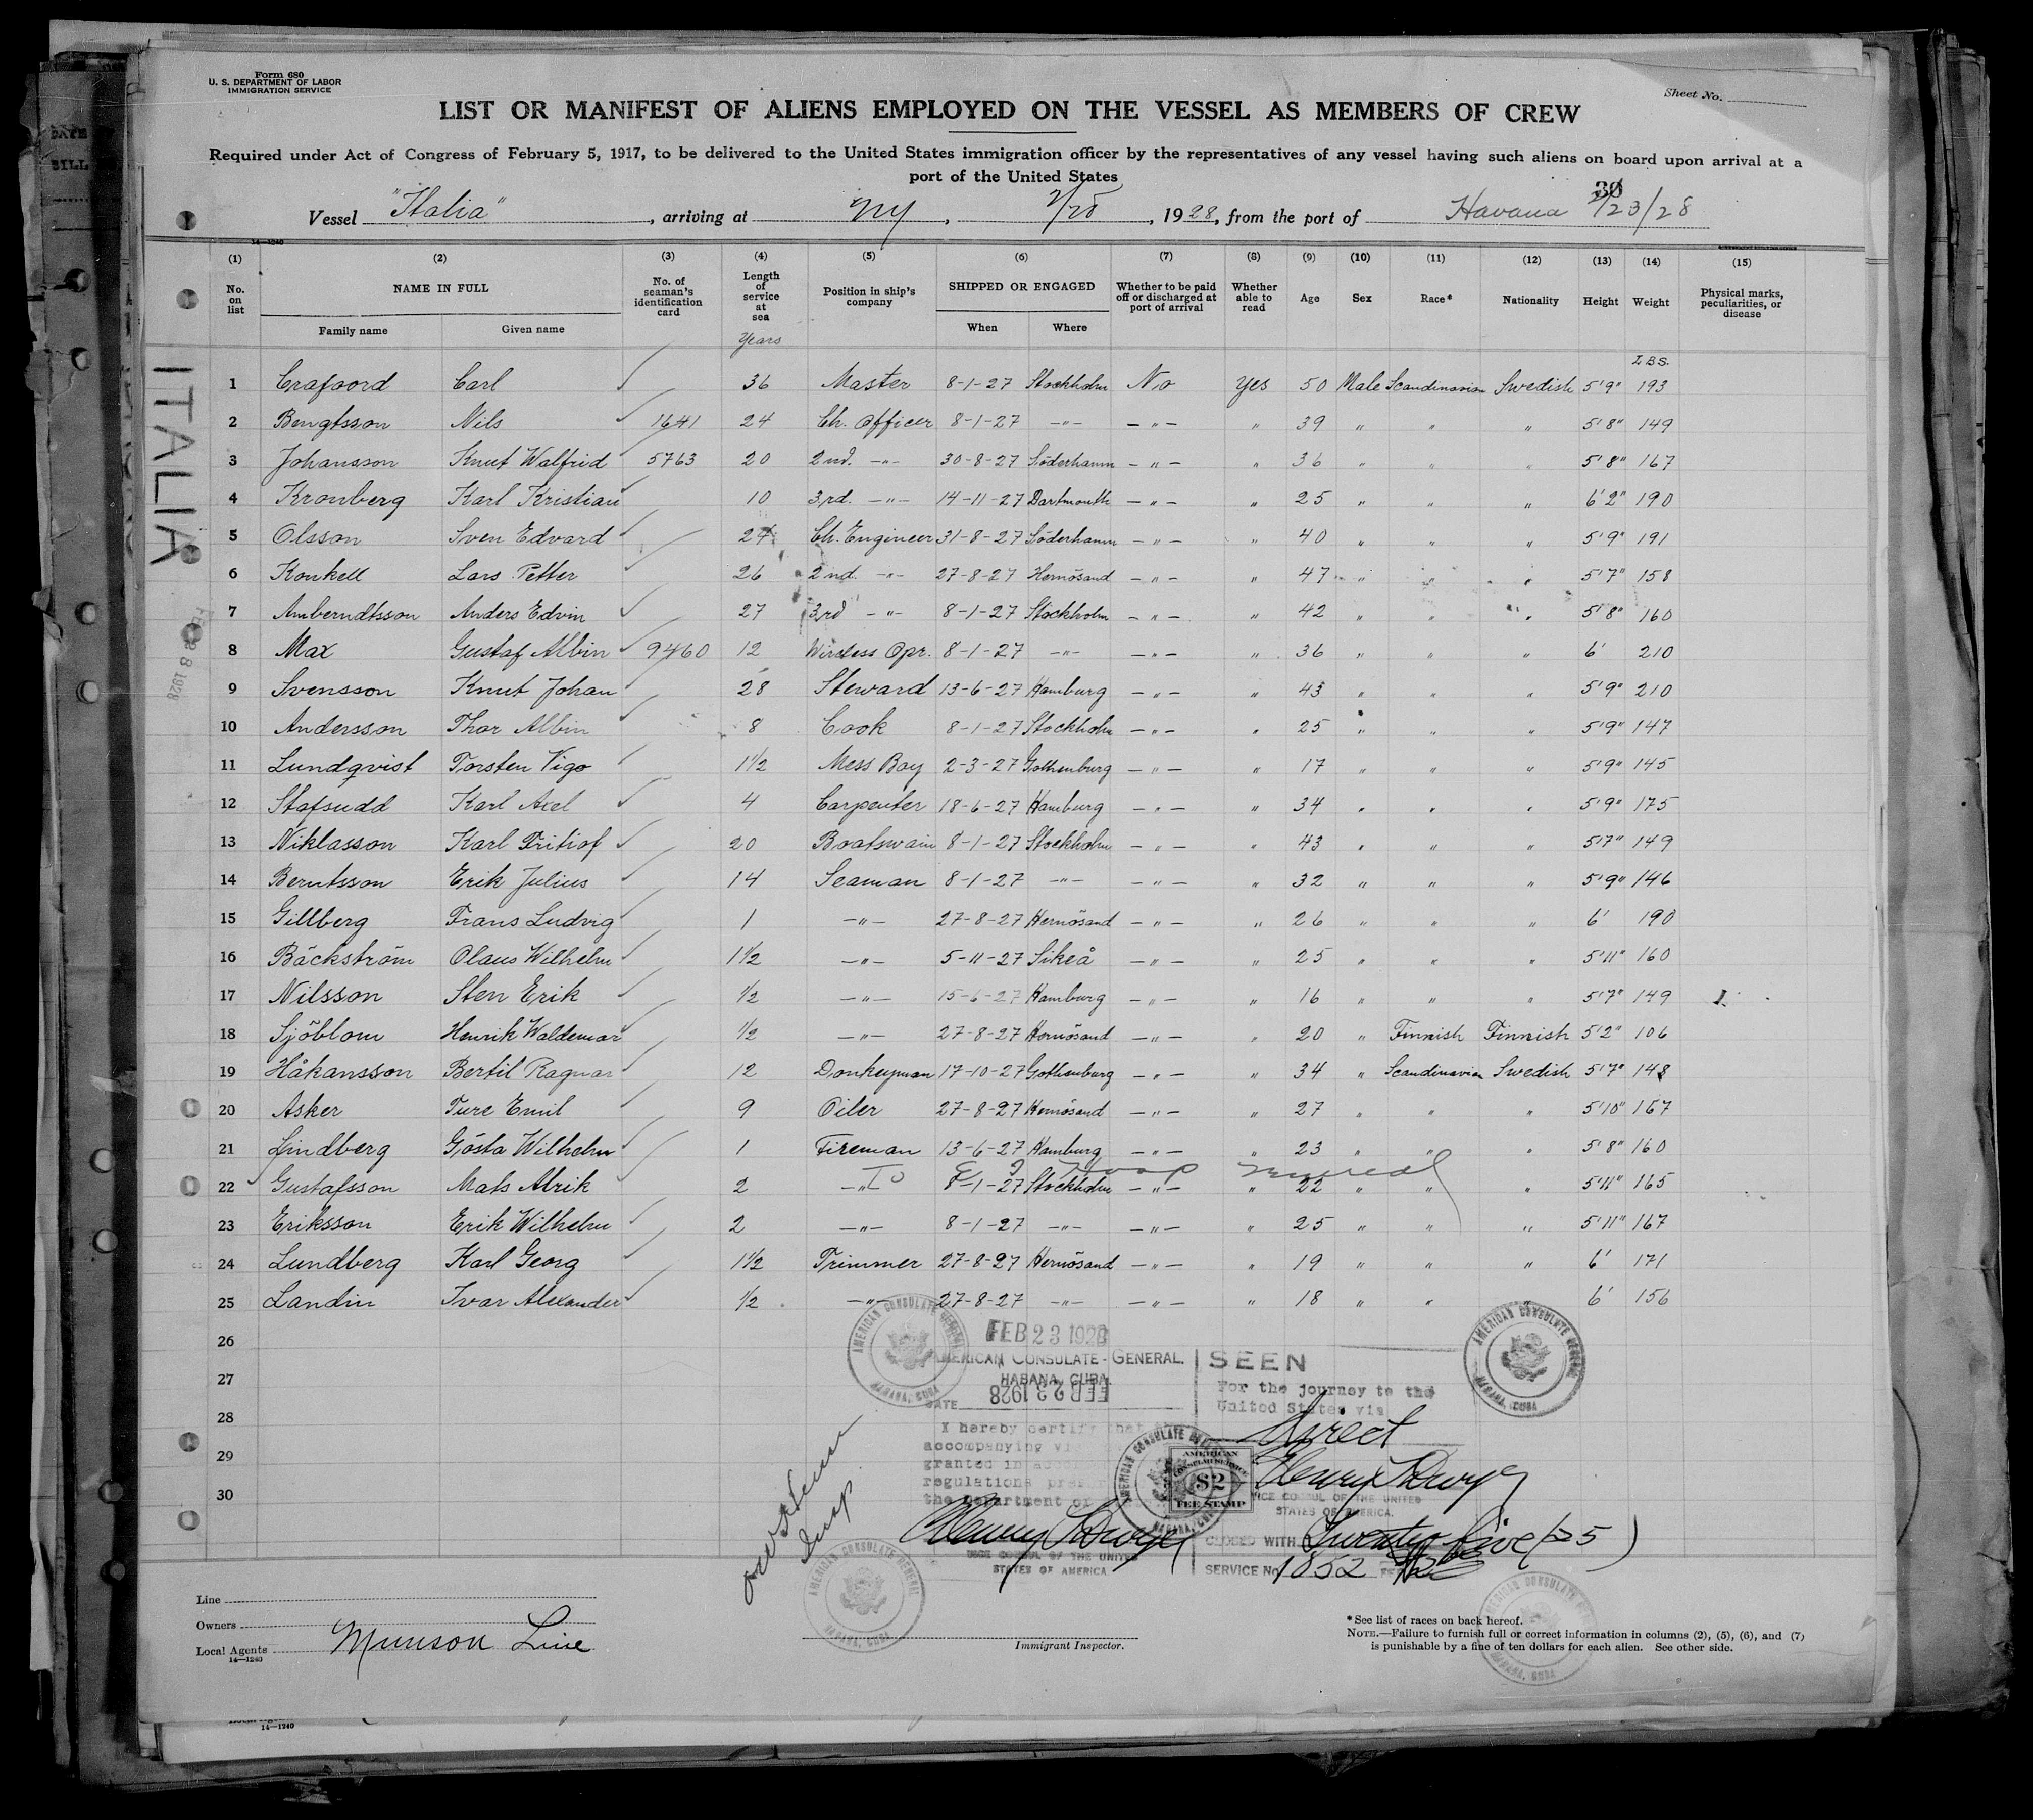 Form 680
U. S. DEPARTMENT OF LABOR
IMMIGRATION SERVICE
Sheet No.
LIST OR MANIFEST OF ALIENS EMPLOYED ON THE VESSEL AS MEMBERS OF CREW
Required under Act of Congress of February 5, 1917, to be delivered to the United States immigration officer by the representatives of any vessel having such aliens on board upon arrival at a
port of the United States
Vessel "Italia", arriving at NY, 2/28, 1928, from the port of Havana 2/23/28
14—1240
(1) No. on list (2) NAME IN FULL Family name Given name (3) No. of seaman's identification card (4) Length of service at sea Years (5) Position in ship's company (6) SHIPPED OR ENGAGED When Where (7) Whether to be paid off or discharged at port of arrival (8) Whether able to read (9) Age (10) Sex (11) Race* (12) Nationality (13) Height (14) Weight (15) Physical marks, peculiarities, or disease
LBS.
1 Crafoord Carl 36 Master 8-1-27 Stockholm No Yes 50 Male Scandinavian Swedish 5'9" 193
2 Bengtsson Nils 1641 24 Ch. Officer 8-1-27 -"- -"- " 39 " " " 5'8" 149
3 Johansson Knut Walfrid 5763 20 2nd. -"- 30-8-27 Söderhamn -"- " 36 " " " 5'8" 167
4 Kronberg Karl Kristian 10 3rd. -"- 14-11-27 Dartmouth -"- " 25 " " " 6'2" 190
5 Olsson Sven Edvard 24 Ch. Engineer 31-8-27 Söderhamn -"- " 40 " " " 5'9" 191
6 Konkell Lars Petter 26 2nd. -"- 27-8-27 Hernösand -"- " 47 " " " 5'7" 158
7 Amberndtsson Anders Edvin 27 3rd -"- 8-1-27 Stockholm -"- " 42 " " " 5'8" 160
8 Max Gustaf Albin 9460 12 Wireless Opr. 8-1-27 -"- -"- " 36 " " " 6' 210
9 Svensson Knut Johan 28 Steward 13-6-27 Hamburg -"- " 43 " " " 5'9" 210
10 Andersson Thor Albin 8 Cook 8-1-27 Stockholm -"- " 25 " " " 5'9" 147
11 Lundqvist Torsten Vigo 1 1/2 Mess Boy 2-3-27 Gothenburg -"- " 17 " " " 5'9" 145
12 Stafsudd Karl Axel 4 Carpenter 18-6-27 Hamburg -"- " 34 " " " 5'9" 175
13 Niklasson Karl Fritiof 20 Boatswain 8-1-27 Stockholm -"- " 43 " " " 5'7" 149
14 Berntsson Erik Julius 14 Seaman 8-1-27 -"- -"- " 32 " " " 5'9" 146
15 Gillberg Frans Ludvig 1 -"- 27-8-27 Hernösand -"- " 26 " " " 6' 190
16 Bäckström Olaus Wilhelm 1 1/2 -"- 5-11-27 Sikeå -"- " 25 " " " 5'11" 160
17 Nilsson Sten Erik 1/2 -"- 15-6-27 Hamburg -"- " 16 " " " 5'7" 149
18 Sjöblom Henrik Waldemar 1/2 -"- 27-8-27 Hernösand -"- " 20 " Finnish Finnish 5'2" 106
19 Håkansson Bertil Ragnar 12 Donkeyman 17-10-27 Gothenburg -"- " 34 " Scandinavian Swedish 5'7" 148
20 Asker Ture Emil 9 Oiler 27-8-27 Hernösand -"- " 27 " " " 5'10" 167
21 Lindberg Gösta Wilhelm 1 Fireman 13-6-27 Hamburg -"- " 23 " " " 5'8" 160
22 Gustafsson Mats Alrik 2 -"- 8-1-27 Stockholm -"- " 22 " " " 5'11" 165
23 Eriksson Erik Wilhelm 2 -"- 8-1-27 -"- -"- " 25 " " " 5'11" 167
24 Lundberg Karl Georg 1 1/2 Trimmer 27-8-27 Hernösand -"- " 19 " " " 6' 171
25 Landin Ivar Alexander 1/2 -"- 27-8-27 -"- -"- " 18 " " " 6' 156
26
27
28
29
30
ITALIA
FEB 23 1928
AMERICAN CONSULATE-GENERAL.
HABANA, CUBA.
DATE FEB 23 1928
I hereby certify that
accompanying
granted in
regulations
the Department of
VICE CONSUL OF THE UNITED
STATES OF AMERICA
SEEN
For the journey to the
United States via
direct
VICE CONSUL OF THE UNITED
STATES OF AMERICA.
CLOSED WITH Twenty five (25)
SERVICE No. 1852
AMERICAN
CONSULAR SERVICE
$2
FEE STAMP
AMERICAN CONSULATE GENERAL
HABANA, CUBA
Line
Owners
Local Agents Munson Line
14—1240
Immigrant Inspector.
*See list of races on back hereof.
NOTE.—Failure to furnish full or correct information in columns (2), (5), (6), and (7)
is punishable by a fine of ten dollars for each alien. See other side.
14—1240